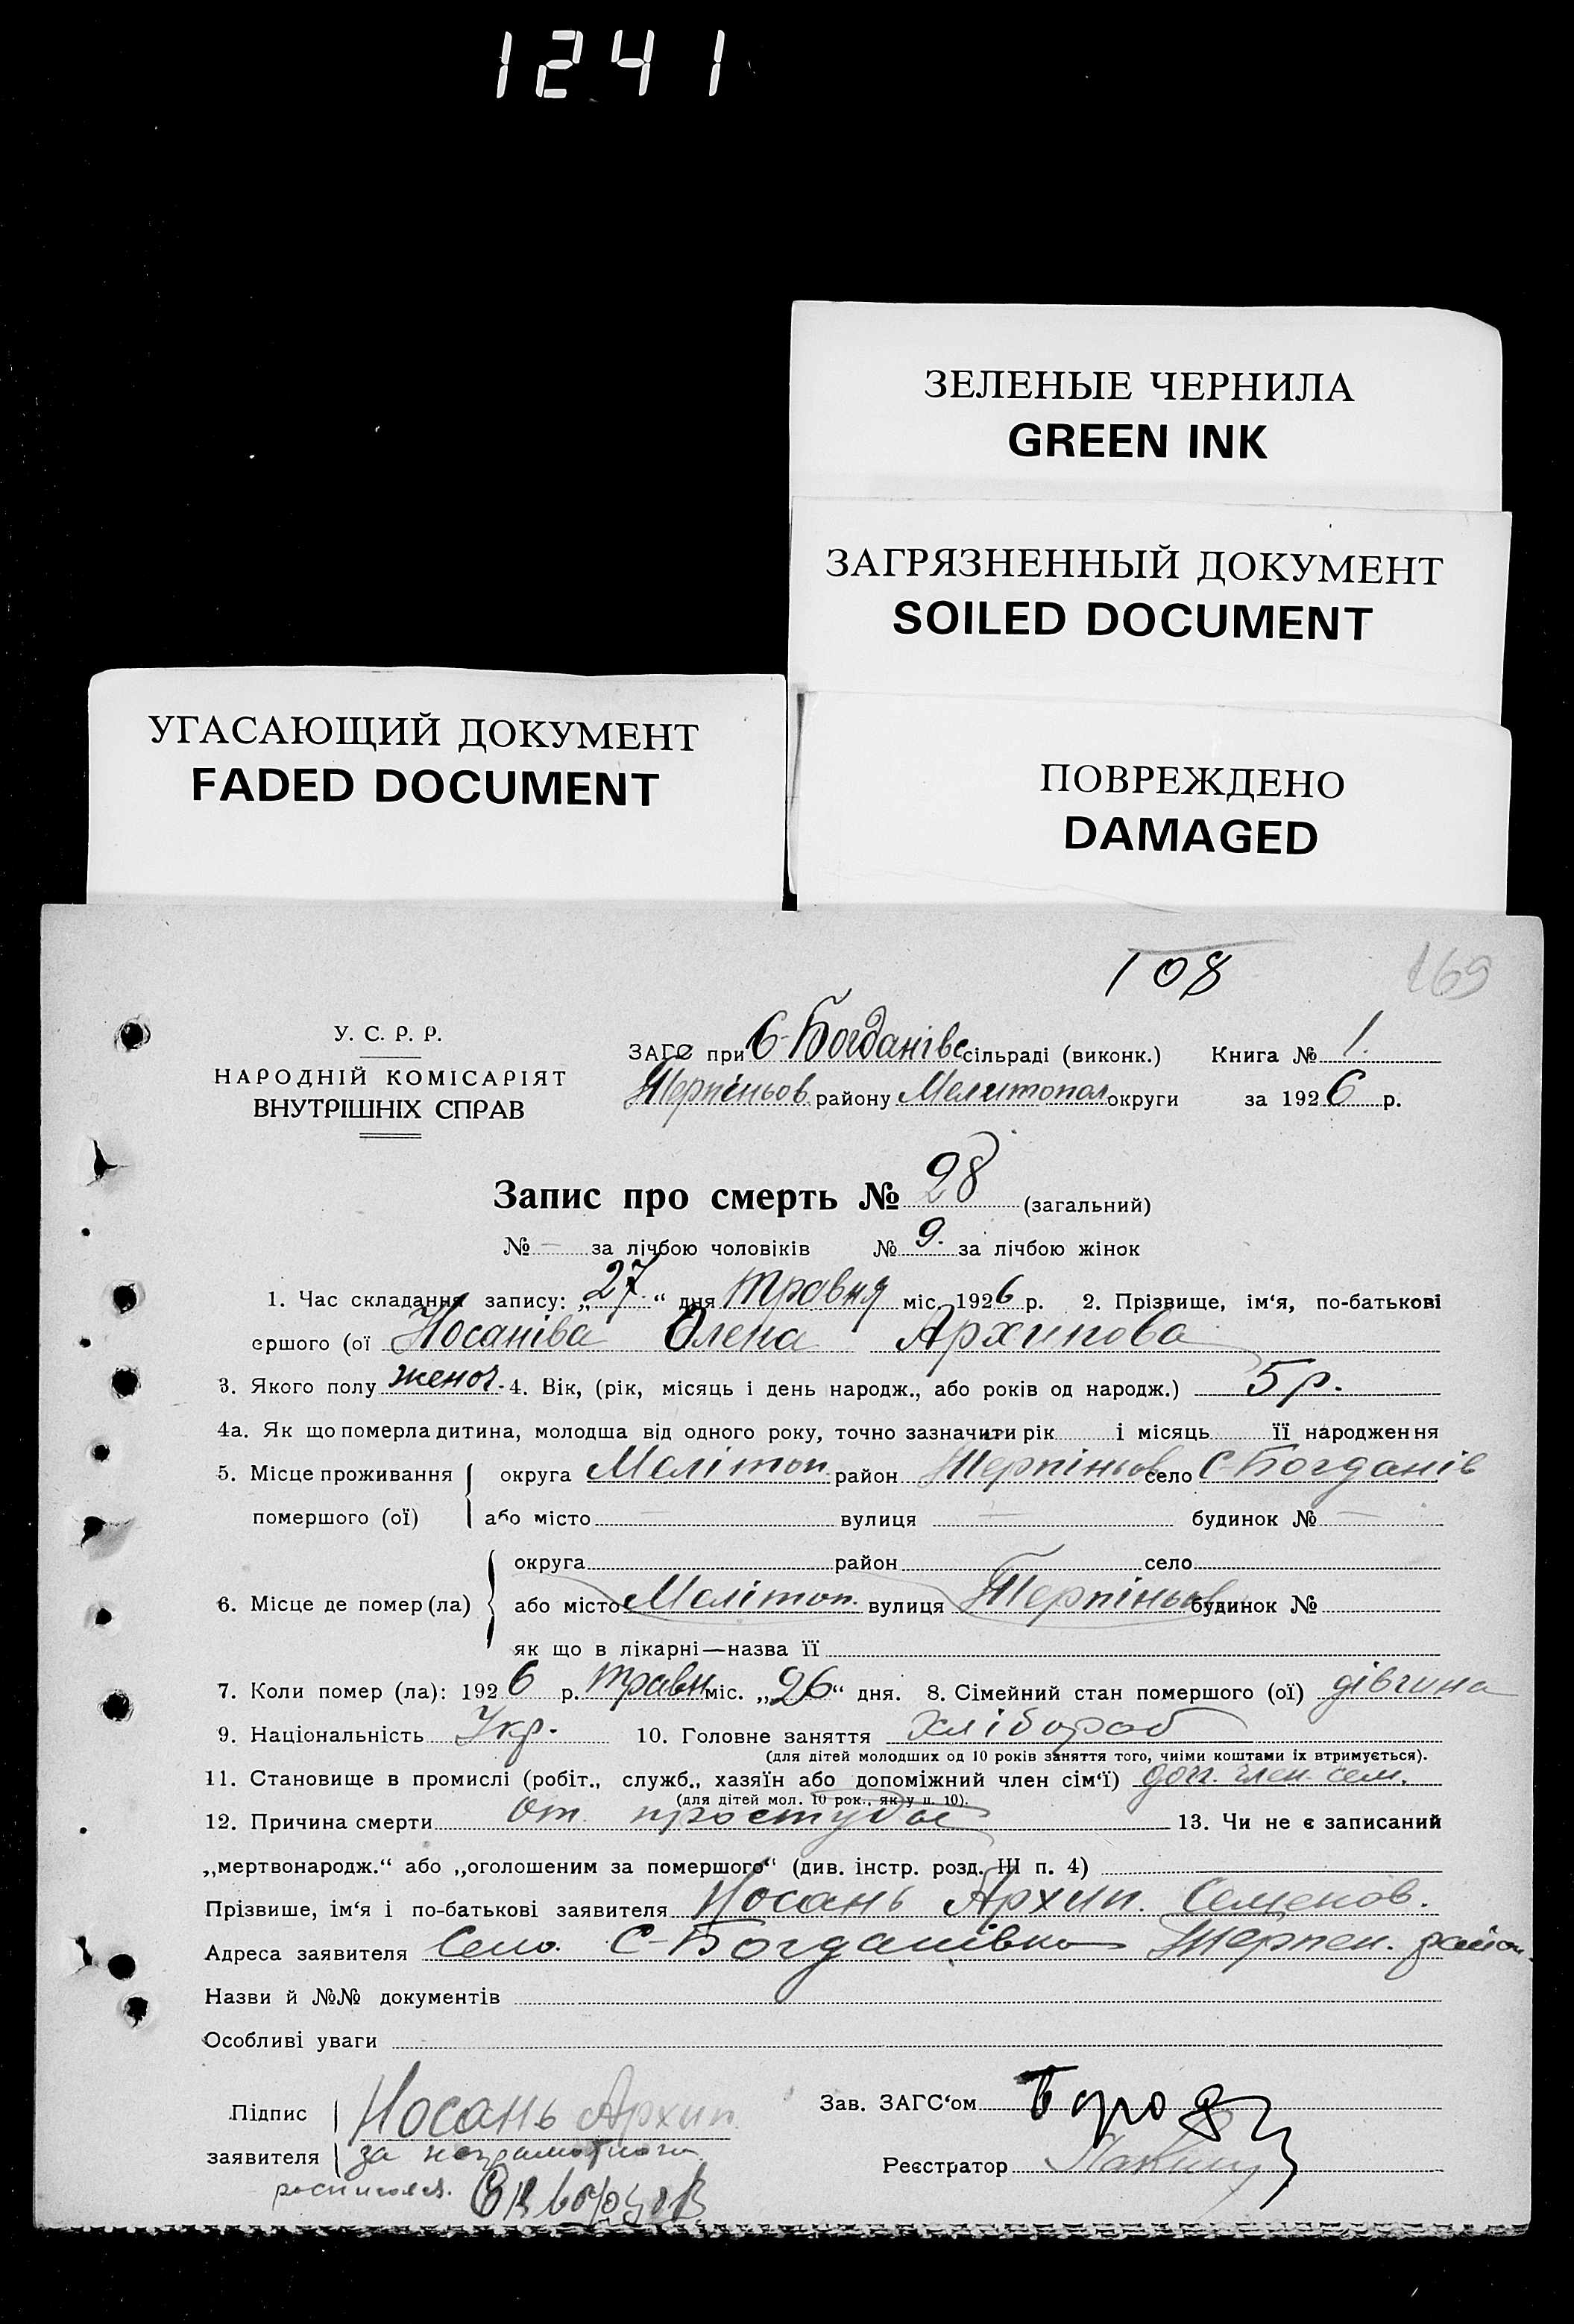 1241
ЗЕЛЕНЫЕ ЧЕРНИЛА
GREEN INK
ЗАГРЯЗНЕННЫЙ ДОКУМЕНТ
SOILED DOCUMENT
УГАСАЮЩИЙ ДОКУМЕНТ
FADED DOCUMENT
ПОВРЕЖДЕНО
DAMAGED
108 169
У. С. Р. Р.
НАРОДНІЙ КОМІСАРІЯТ
ВНУТРІШНІХ СПРАВ
ЗАГС при С-Богданівс сільраді (виконк.) Книга № 1.
Терпіньов. району Мелитопол округи за 1926 р.
Запис про смерть № 28 (загальний)
№ — за лічбою чоловіків № 9. за лічбою жінок
1. Час складання запису: „27“ дня травня міс. 1926 р. 2. Прізвище, ім‘я, по-батькові
ершого (ої Носаніва Олена Архипова
3. Якого полу женоч. 4. Вік, (рік, місяць і день народж., або років од народж.) 5 р.
4а. Як що померла дитина, молодша від одного року, точно зазначити рік і місяць її народження
5. Місце проживання помершого (ої) округа Мелітоп. район Терпіньов село С-Богданів
або місто — вулиця — будинок № —
6. Місце де помер (ла) округа район село
або місто Мелітоп. вулиця Терпіньов будинок №
як що в лікарні—назва її
7. Коли помер (ла): 1926 р. травн міс. „26“ дня. 8. Сімейний стан помершого (ої) дівчина
9. Національність Укр. 10. Головне заняття Хлібороб
(для дітей молодших од 10 років заняття того, чиїми коштами їх втримується).
11. Становище в промислі (робіт., служб., хазяїн або допоміжний член сім‘ї) доп. член. сем.
(для дітей мол. 10 рок., як у п. 10).
12. Причина смерти От простуды 13. Чи не є записаний
„мертвонародж.“ або „оголошеним за помершого“ (див. інстр. розд. III п. 4)
Прізвише, ім‘я і по-батькові заявителя Носань Архип. Семенов.
Адреса заявителя Село. С-Богданівка Терпен. район.
Назви й №№ документів
Особливі уваги
Підпис заявителя Носань Архип
за неграмотного
росписался.
Зав. ЗАГС‘ом
Реєстратор